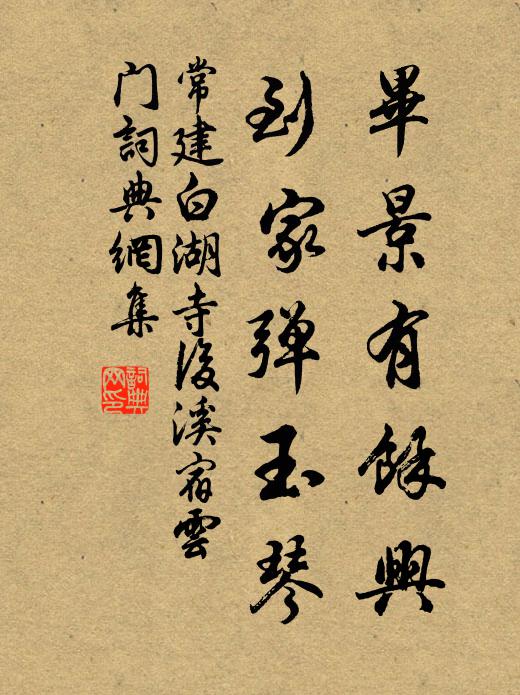 畢景有餘興
到家弹玉琴
常建白湖寺後溪宿雲
门詞典網集
詞典網印